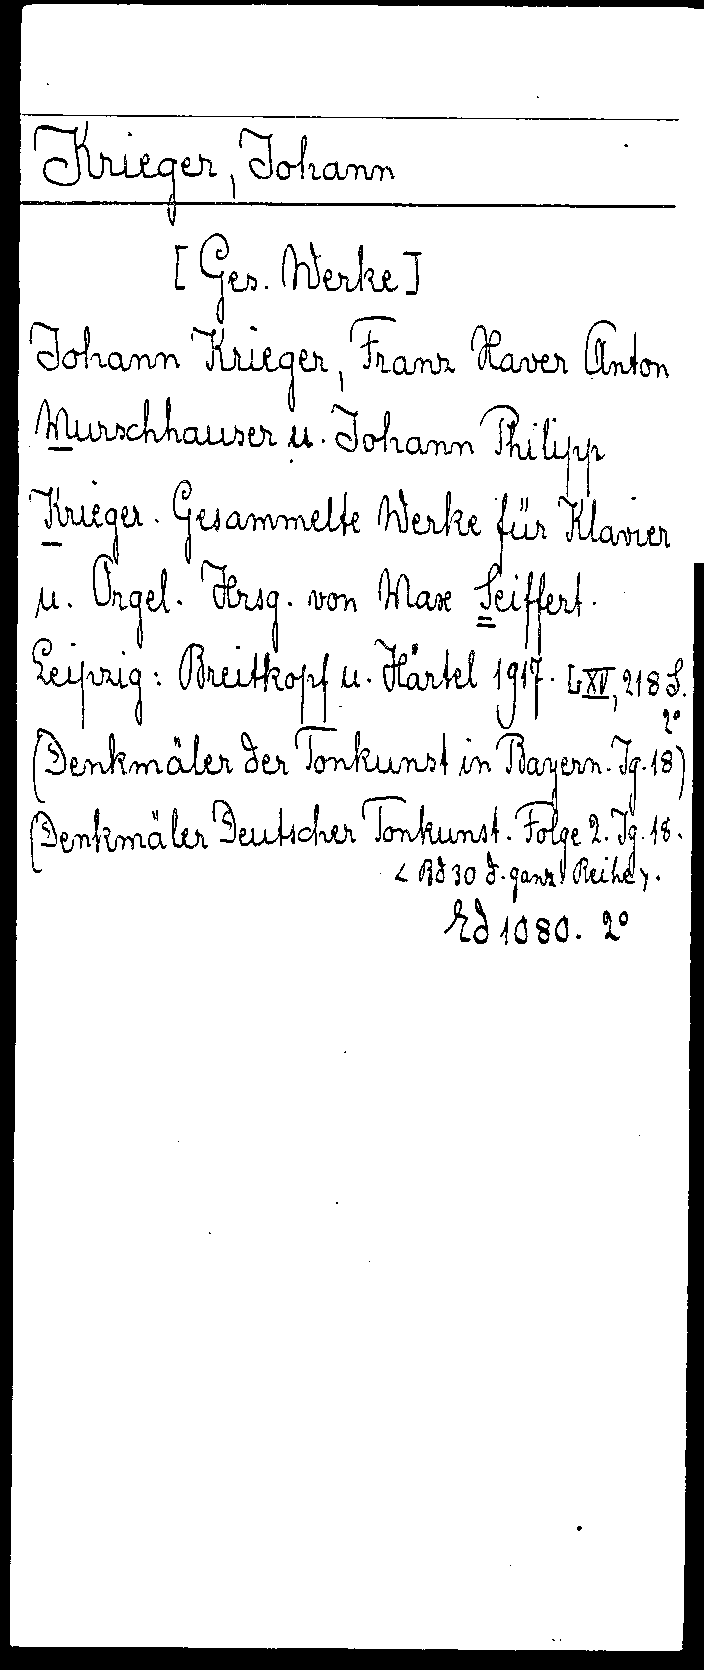 Krieger, Johann
[Ges. Werke]
Johann Krieger, Franz Xaver Anton
Murschhauser u. Johann Philipp
Krieger. Gesammelte Werke für Klavier
u. Orgel. Hrsg. von Max Seiffert.
Leipzig: Breitkopf u. Härtel 1917. LXV, 218 S.
2°
(Denkmäler der Tonkunst in Bayern. Jg. 18)
(Denkmäler Deutscher Tonkunst. Folge 2. Jg. 18.
< Bd 30 d. ganz. Reihe >.
Ed 1080. 2°